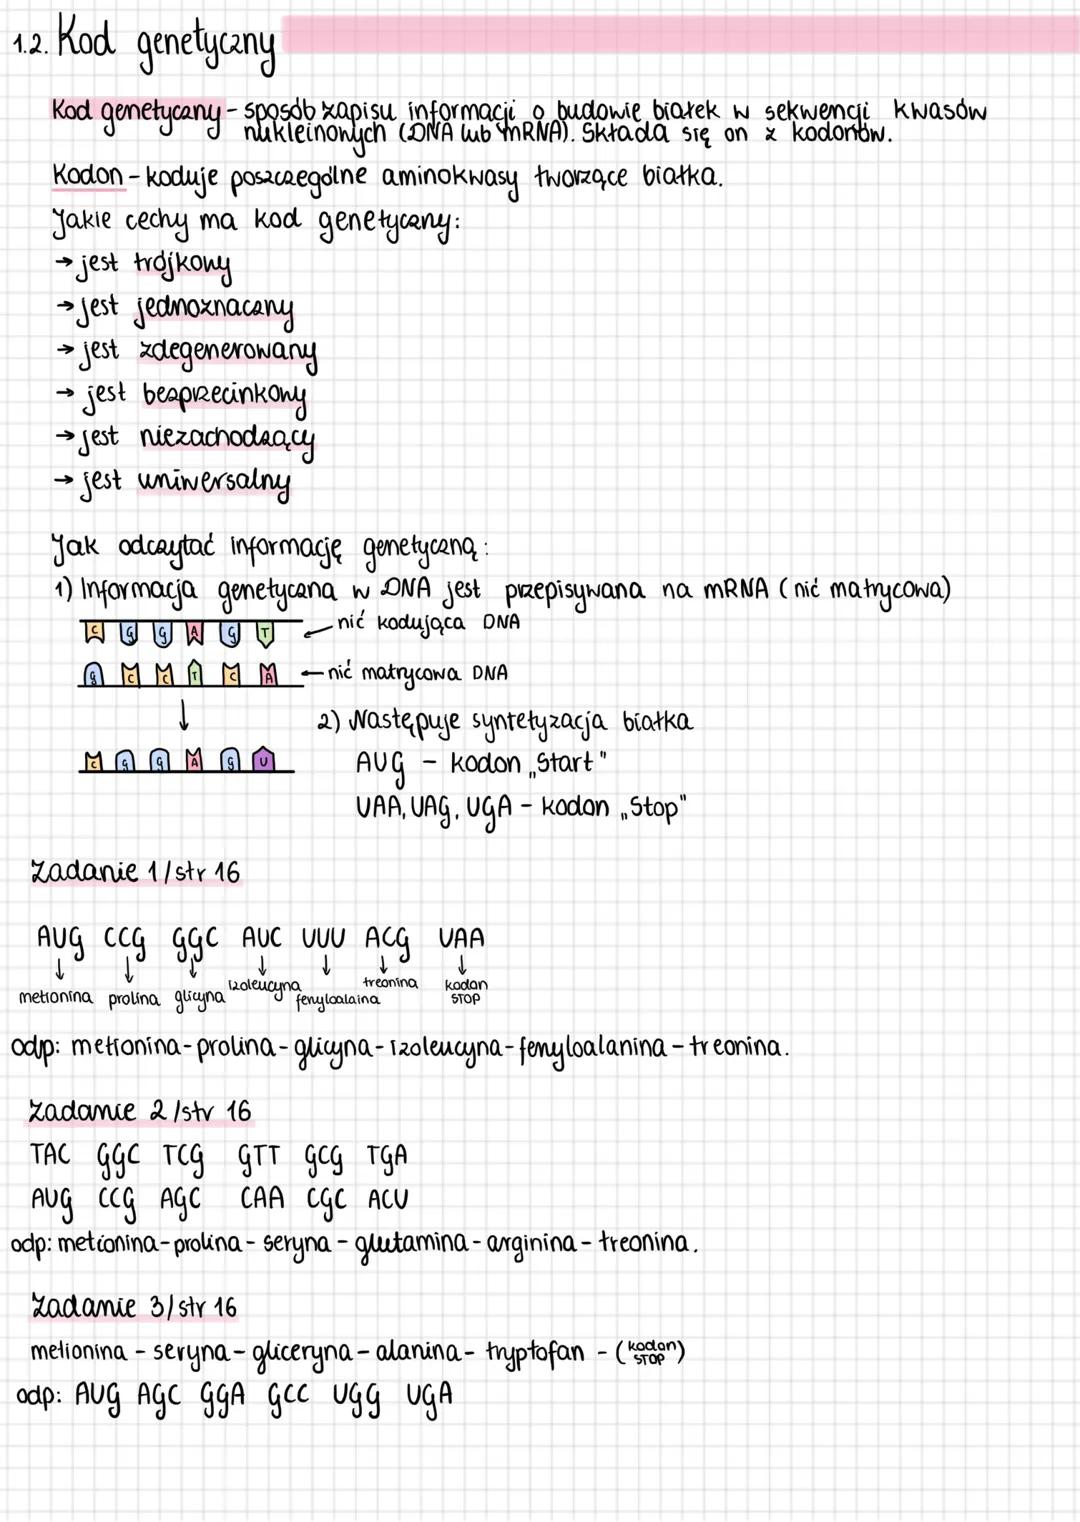 1.2. Kod genetyczny
Kod genetyczny - sposób zapisu informacji o budowie białek w sekwencji kwasów
nukleinowych (DNA lub mRNA). Składa się on z kodonów.
Kodon - koduje poszczególne aminokwasy tworzące białka.
Jakie cechy ma kod genetyczny:
→ jest trójkowy
→ jest jednoznaczny
→ jest zdegenerowany
→ jest bezprzecinkowy
→ jest niezachodzący
→ jest uniwersalny
Jak odczytać informację genetyczną:
1) Informacja genetyczna w DNA jest przepisywana na mRNA (nić matrycowa)
C G G A G T ← nić kodująca DNA
G C C T C A ← nić matrycowa DNA
↓
2) Następuje syntetyzacja białka
C G G A G U
AUG - kodon „Start"
UAA, UAG, UGA - kodon „Stop"
Zadanie 1/str 16
AUG CCG GGC AUC UUU ACG UAA
↓ ↓ ↓ ↓ ↓ ↓ ↓
metionina prolina glicyna izoleucyna fenyloalaina treonina kodon STOP
odp: metionina - prolina - glicyna - izoleucyna - fenyloalanina - treonina.
Zadanie 2/str 16
TAC GGC TCG GTT GCG TGA
AUG CCG AGC CAA CGC ACU
odp: metionina - prolina - seryna - glutamina - arginina - treonina.
Zadanie 3/str 16
metionina - seryna - gliceryna - alanina - tryptofan - (kodon STOP)
odp: AUG AGC GGA GCC UGG UGA